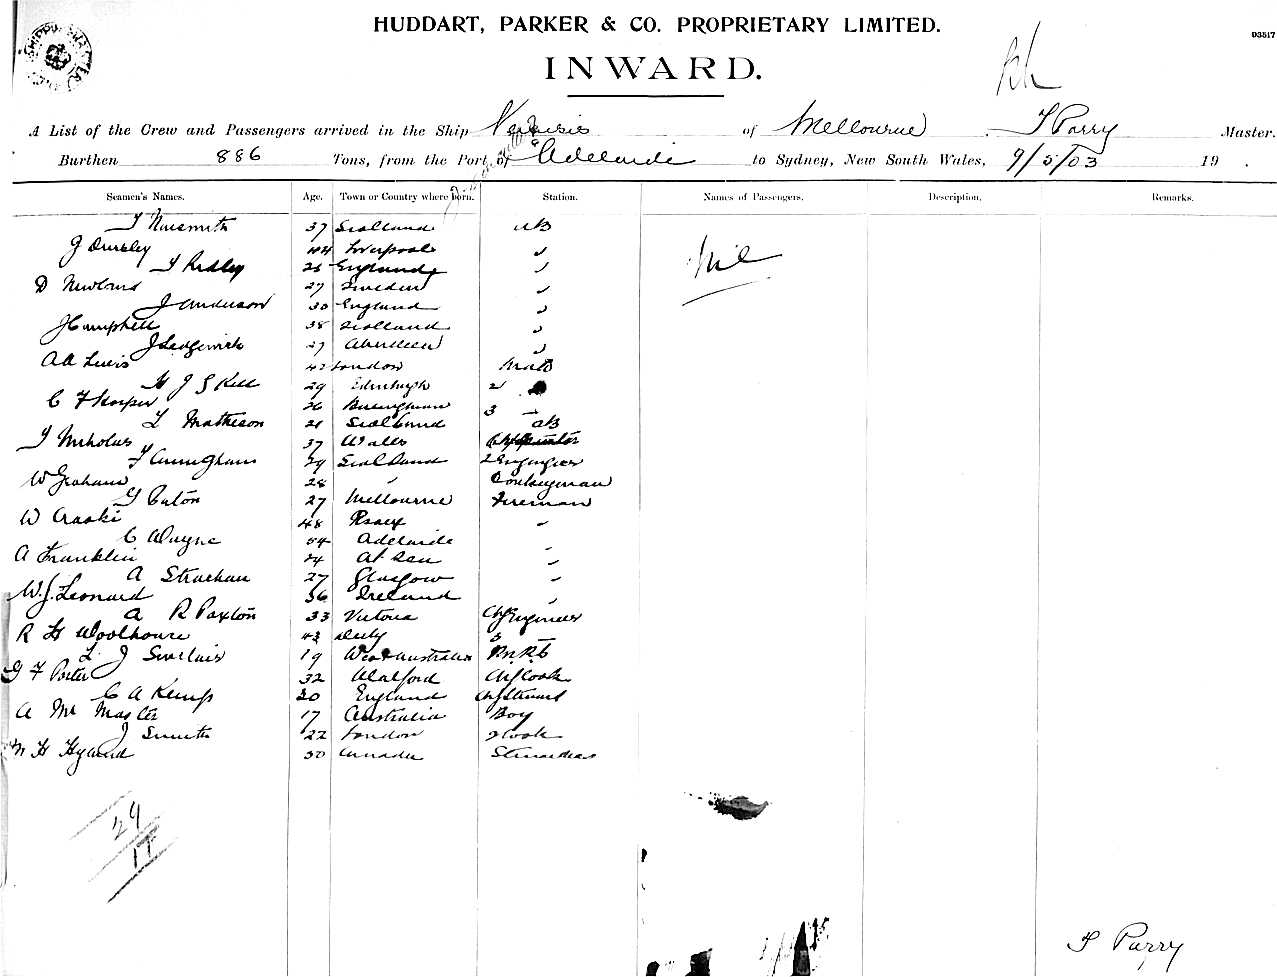 HUDDART, PARKER & CO. PROPRIETARY LIMITED.
03517
INWARD.
A List of the Crew and Passengers arrived in the Ship of Melbourne, T Parry Master.
Burthen 886 Tons, from the Port of Adelaide to Sydney, New South Wales, 9/5/03 19 .
Seamen's Names. Age. Town or Country where born. Station. Names of Passengers. Description. Remarks.
Naismith 37 Scotland AB
44 Liverpool "
Nil
T Ridley 26 England "
D Newland 27 Sweden "
J Anderson 30 England "
J Campbell 38 Scotland "
J Sedgwick 27 Aberdeen "
AA Lewis 42 London Mate
H J S Kell 29 Edinburgh 2
C F Hooper 26 Birmingham 3
L Mathieson 21 Scotland AB
T Nicholas 37 Wales
T Cunningham 29 Scotland 2 Engineer
W Graham 28 " Donkeyman
G Eaton 27 Melbourne Fireman
W 48 Essex "
C Wayne 54 Adelaide
A Franklin 24 At Sea "
A Strachan 27 Glasgow "
W.J. Leonard 36 Ireland "
A R Paxton 33 Victoria Chf Engineer
R H Woolhouse 43 3
L J Sinclair 19 West Australia
G F Porter 32 Chf Cook
C A Kemp 30 England Chf Steward
A Mc Master 17 Australia Boy
J Smith 22 London 2 Cook
H Hyland 30 Canada Stewardess
29
17
T Parry